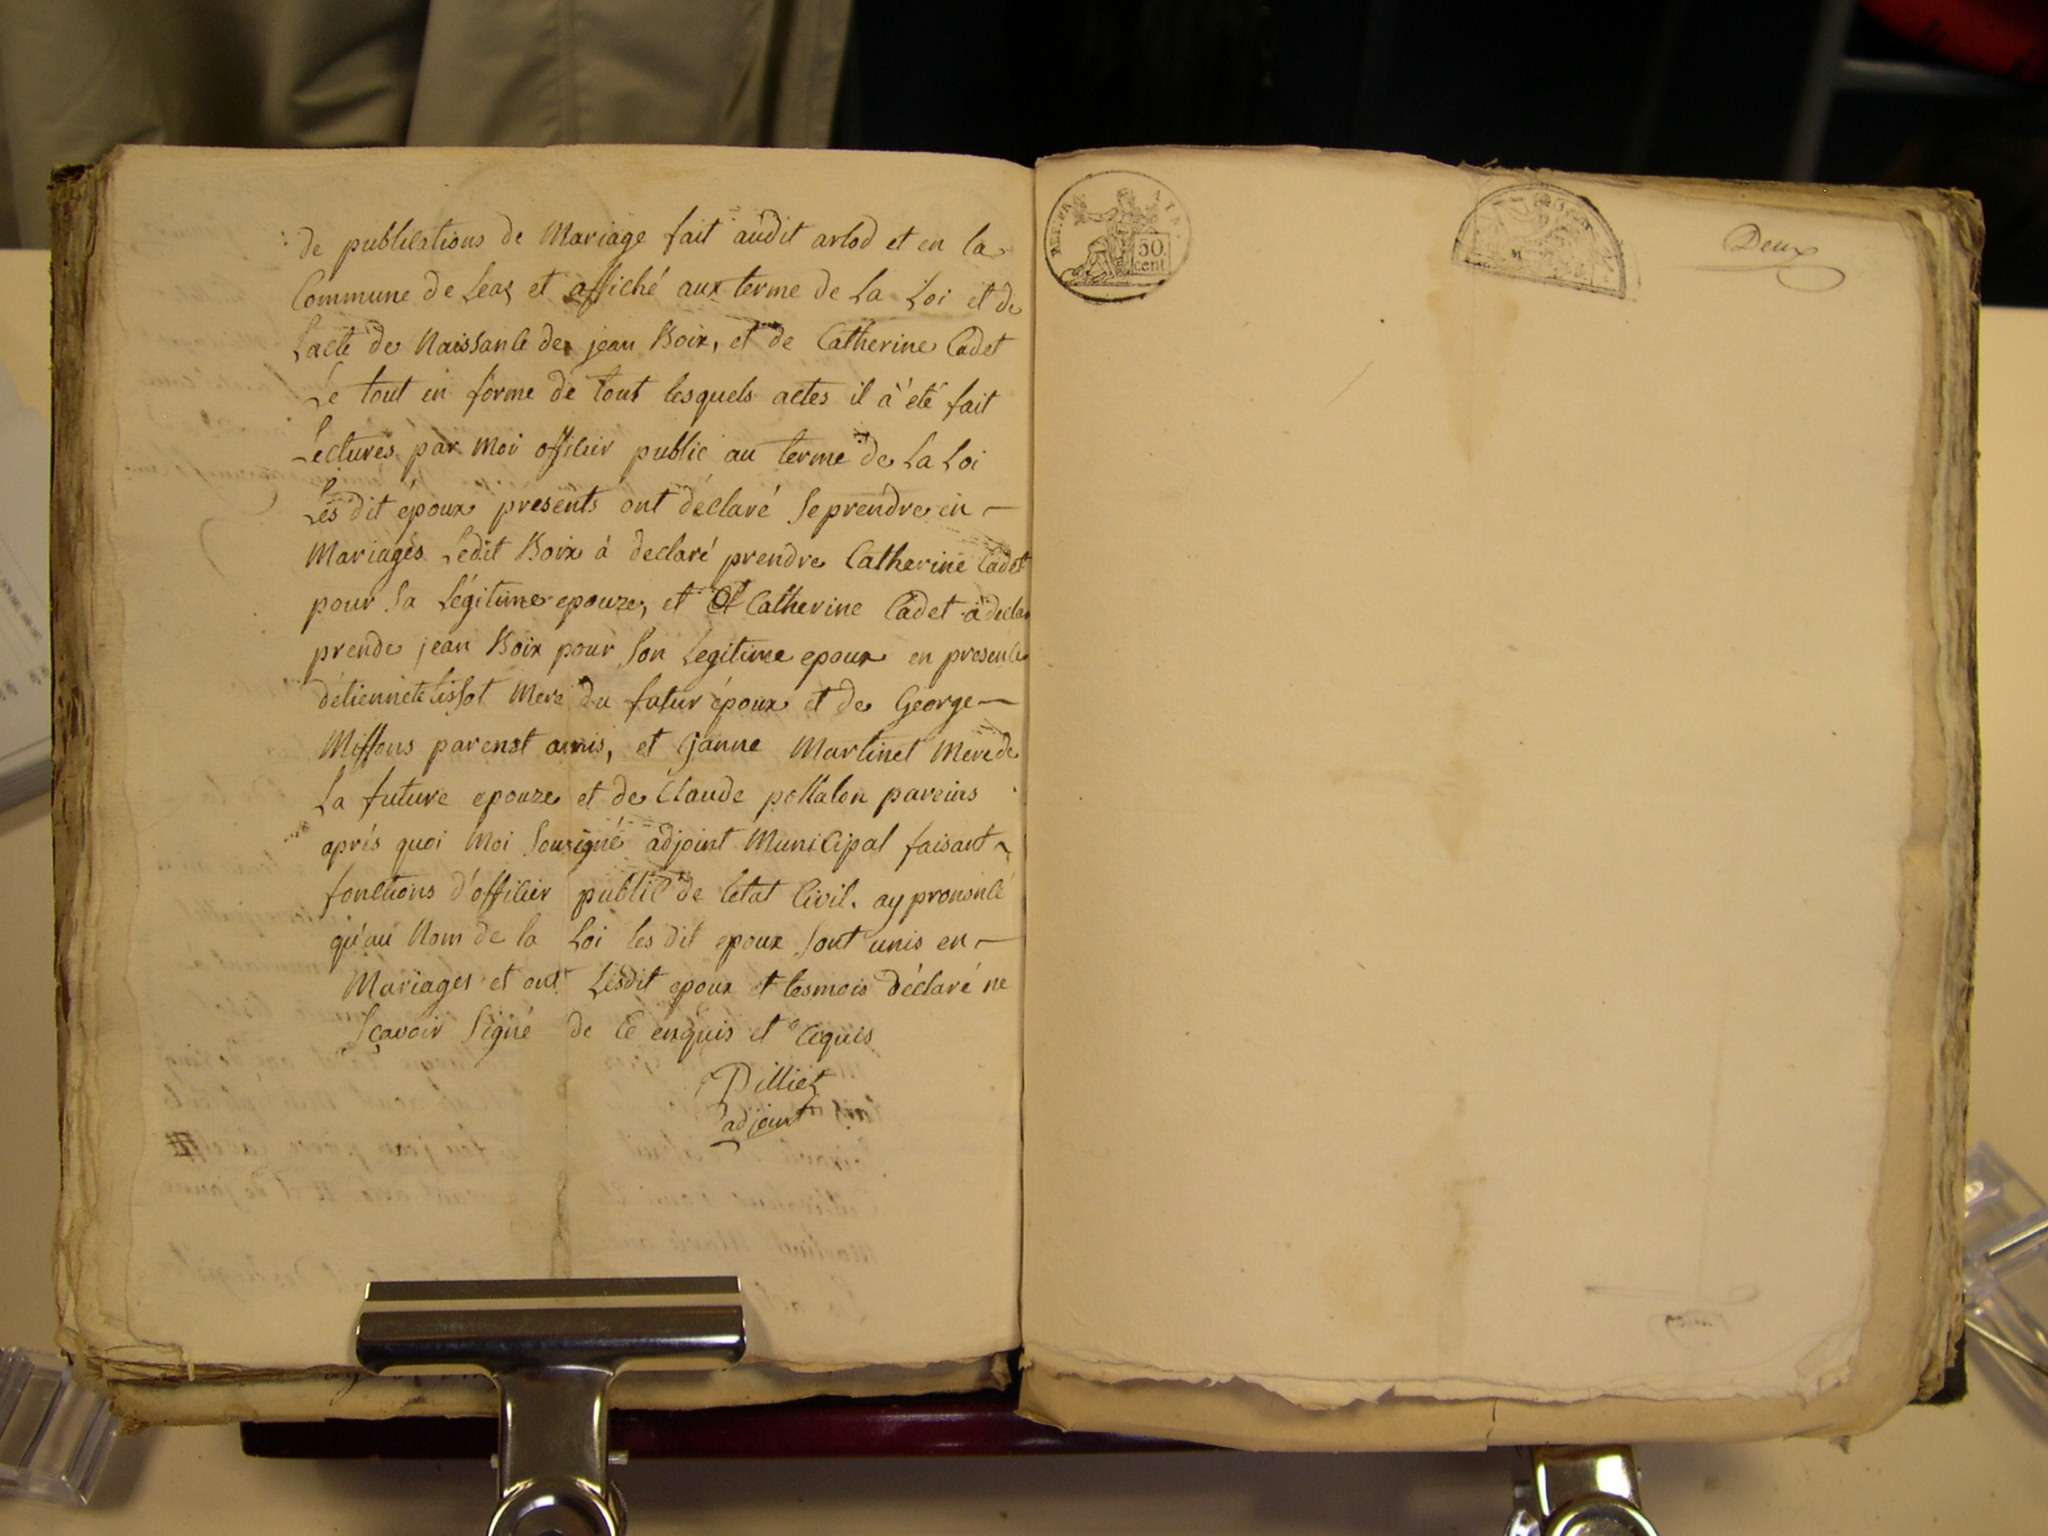 de publications de Mariage fait audit arlod et en la
Commune de Leaz et affiché aux terme de La Loi et de
Lacte de Naissance de jean Boix, et de Catherine Cadet
Le tout en forme de tous lesquels actes il à été fait
Lectures par Moi officier public au terme de La Loi
Les dit époux presents ont déclaré Se prendre en
Mariages Ledit Boix à declaré prendre Catherine Cadet
pour Sa Légitime epouze, et Catherine Cadet à declar
prende jean Boix pour Son Legitime epoux en presence
détiennete tissot Mere du futur époux et de George
Missons parenst amis, et Janne Martinet Mere de
La future epouze et de Claude pareins
aprés quoi Moi Sousigné adjoint Municipal faisant
fonctions d'officier public de letat Civil. ay prononcé
qu'au Nom de la Loi les dit epoux Sont unis en
Mariages et ont Lesdit epoux et tesmois déclaré ne
Sçavoir Signé de Ce enquis et requis
Pilliet
adjoint
50
cent
Deux